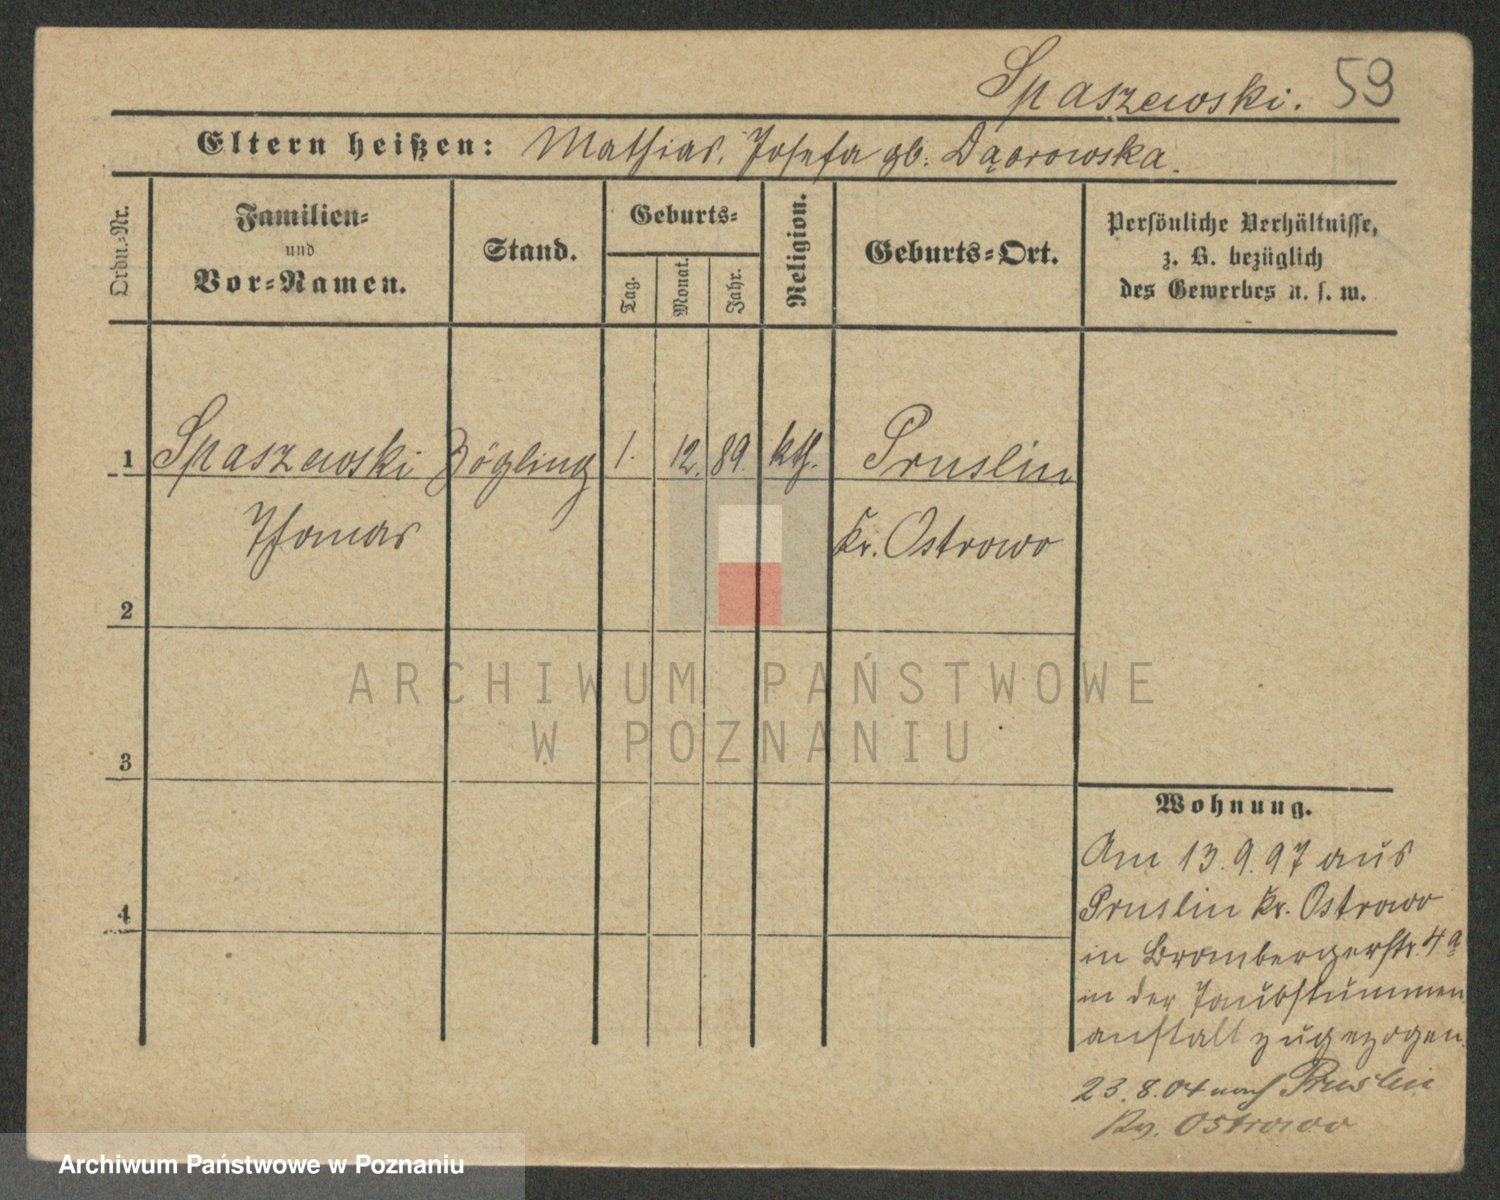 Spaszewski. 59
Eltern heißen: Mathias, Josefa gb. Dąbrowska.
Ordn.-Nr.
Familien-
und
Vor-Namen.
Stand.
Geburts-
Tag.
Monat.
Jahr.
Religion.
Geburts-Ort.
Persönliche Verhältnisse,
z. B. bezüglich
des Gewerbes u. s. w.
1 Spaszewski Zögling 1. 12. 89. kth. Pruslin
Thomas Kr. Ostrowo
2
3
4
Wohnung.
Am 13.9.97 aus
Pruslin Kr. Ostrowo
in Brombergerstr. 4a
in der Taubstummen
anstalt zugezogen.
23.8.04 nach Pruslin
Kr. Ostrowo
ARCHIWUM PAŃSTWOWE
W POZNANIU
Archiwum Państwowe w Poznaniu